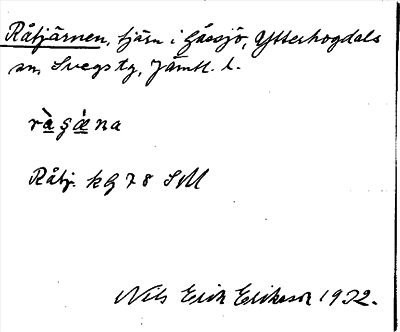 Råtjärnen, tjärn i Gåssjö, Ytterhogdals
sn, Svegs tg, Jämtl. l.
ràgǽna
Råtj. kG 78 SM
Nils Erik Eriksson 1932.